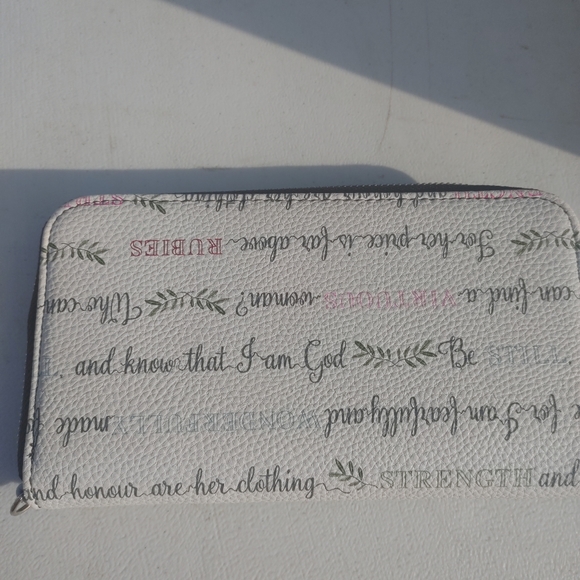 and honour are her clothing
For her price is far above RUBIES
can find a VIRTUOUS woman? Who can
, and know that I am God Be STILL
for I am fearfully and WONDERFULLY made
and honour are her clothing STRENGTH and